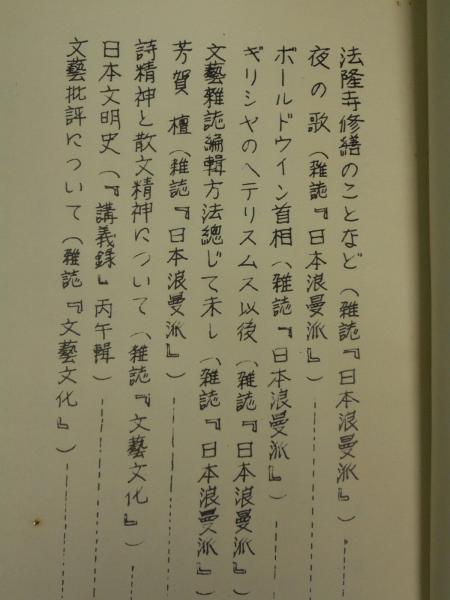 法隆寺修繕のことなど（雑誌『日本浪曼派』）
夜の歌（雑誌『日本浪曼派』）
ボールドウイン首相（雑誌『日本浪曼派』）
ギリシヤのヘテリスムス以後（雑誌『日本浪曼派』）
文藝雜誌編輯方法總じて未し（雑誌『日本浪曼派』）
芳賀檀（雑誌『日本浪曼派』）
詩精神と散文精神について（雑誌『文藝文化』）
日本文明史（『講義錄』丙午輯）
文藝批評について（雑誌『文藝文化』）